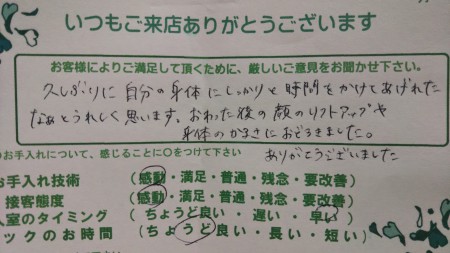 いつもご来店ありがとうございます
お客様によりご満足して頂くために、厳しいご意見をお聞かせ下さい。
久しぶりに自分の身体にしっかりと時間をかけてあげれた
なぁとうれしく思います。おわった後の顔のリフトアップや
身体のかるさにおどろきました。
ありがとうございました
のお手入れについて、感じることに〇をつけて下さい
お手入れ技術 (感動・満足・普通・残念・要改善)
接客態度 (感動・満足・普通・残念・要改善)
入室のタイミング (ちょうど良い・遅い・早い)
ックのお時間 (ちょうど良い・長い・短い)